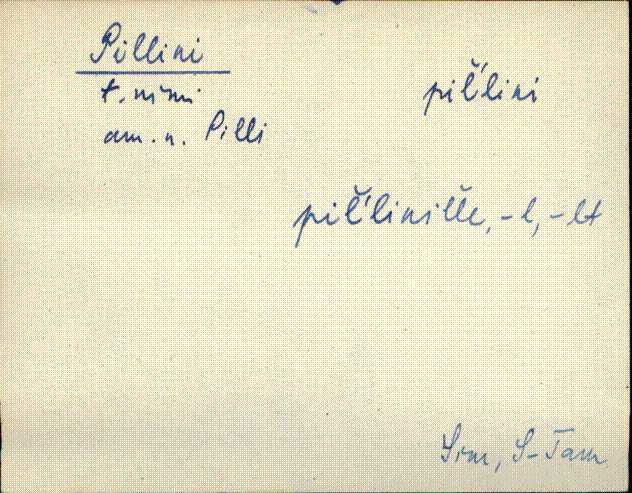 Pillini
t. nimi
am. n. Pilli
pil̆'lini
pil̆'linil̆l̆e, -l, -lt
S-Tam